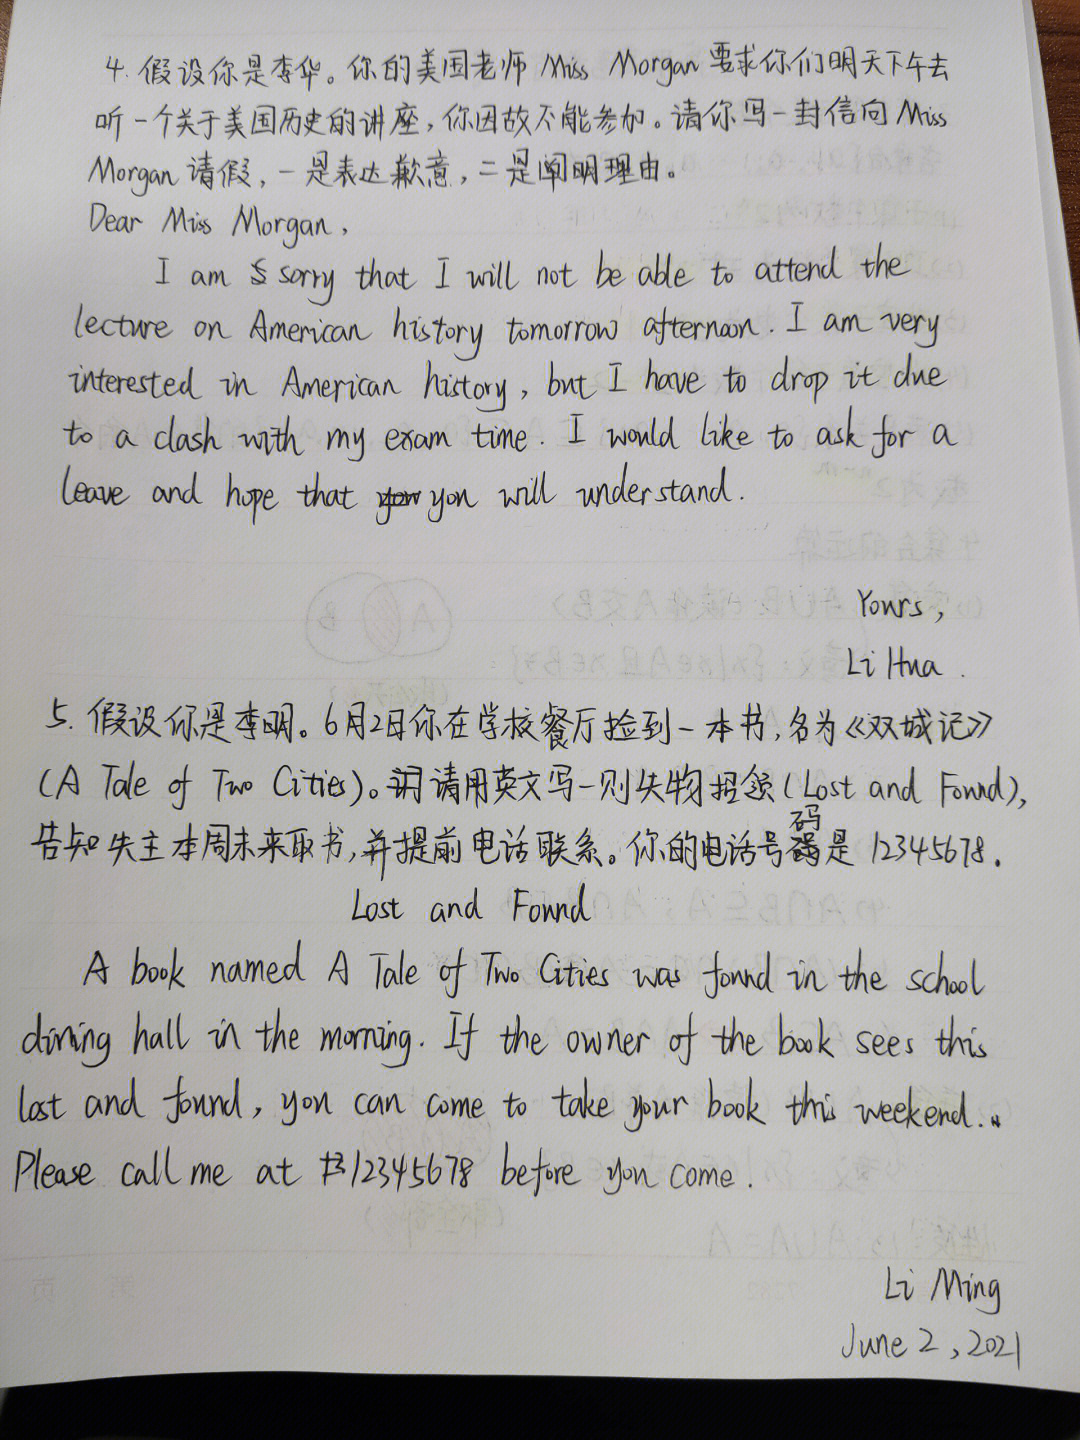 4. 假设你是李华。你的美国老师 Miss Morgan 要求你们明天下午去
听一个关于美国历史的讲座，你因故不能参加。请你写一封信向 Miss
Morgan 请假，一是表达歉意，二是阐明理由。
Dear Miss Morgan,
I am sorry that I will not be able to attend the
lecture on American history tomorrow afternoon. I am very
interested in American history, but I have to drop it due
to a clash with my exam time. I would like to ask for a
leave and hope that you will understand.
Yours,
Li Hua.
5. 假设你是李明。6月2日你在学校餐厅捡到一本书，名为《双城记》
(A Tale of Two Cities)。请用英文写一则失物招领(Lost and Found),
告知失主本周末来取书，并提前电话联系。你的电话号码是 12345678.
Lost and Found
A book named A Tale of Two Cities was found in the school
dining hall in the morning. If the owner of the book sees this
lost and found, you can come to take your book this weekend.
Please call me at 12345678 before you come.
Li Ming
June 2, 2021